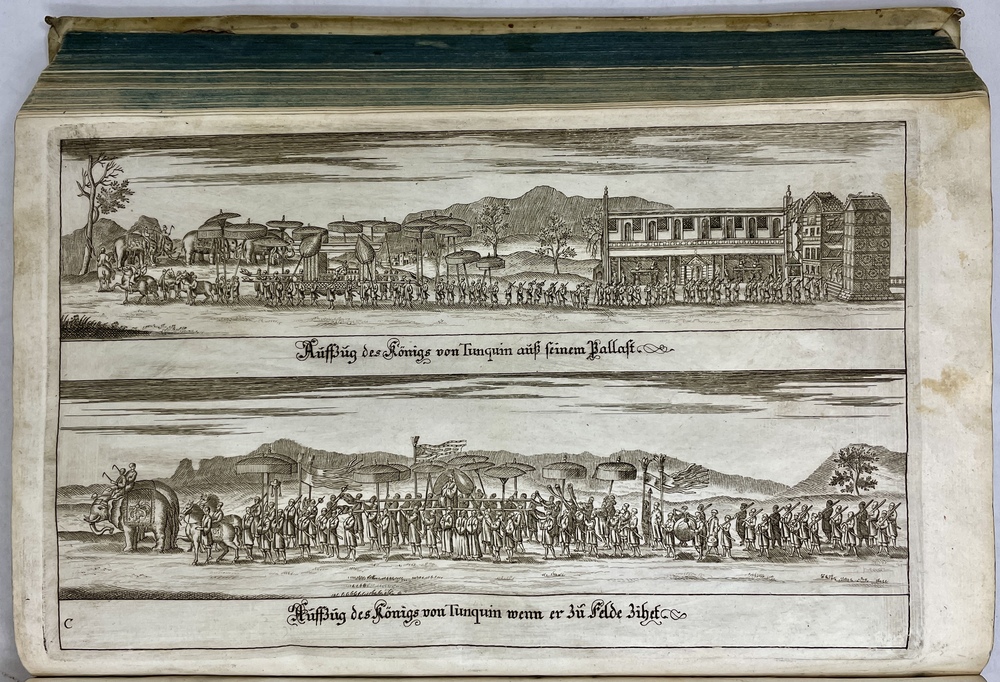 Auffzug des Königs von Tunquin auß seinem Pallast.
Auffzug des Königs von Tunquin wenn er zů Felde zihet
C